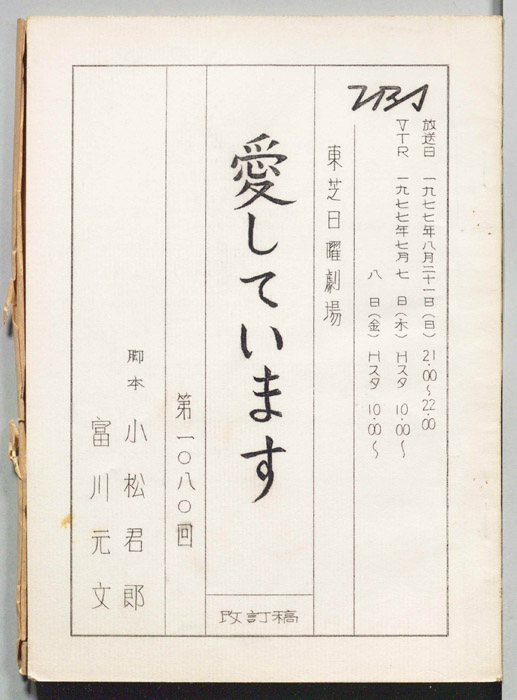 TBS
放送日 一九七七年八月二十一日(日) 21:00〜22:00
VTR 一九七七年七月七 日(木) Hスタ 10:00〜
八 日(金) Hスタ 10:00〜
東芝日曜劇場
愛しています
改訂稿
第一〇八〇回
脚本 小松君郎
富川元文